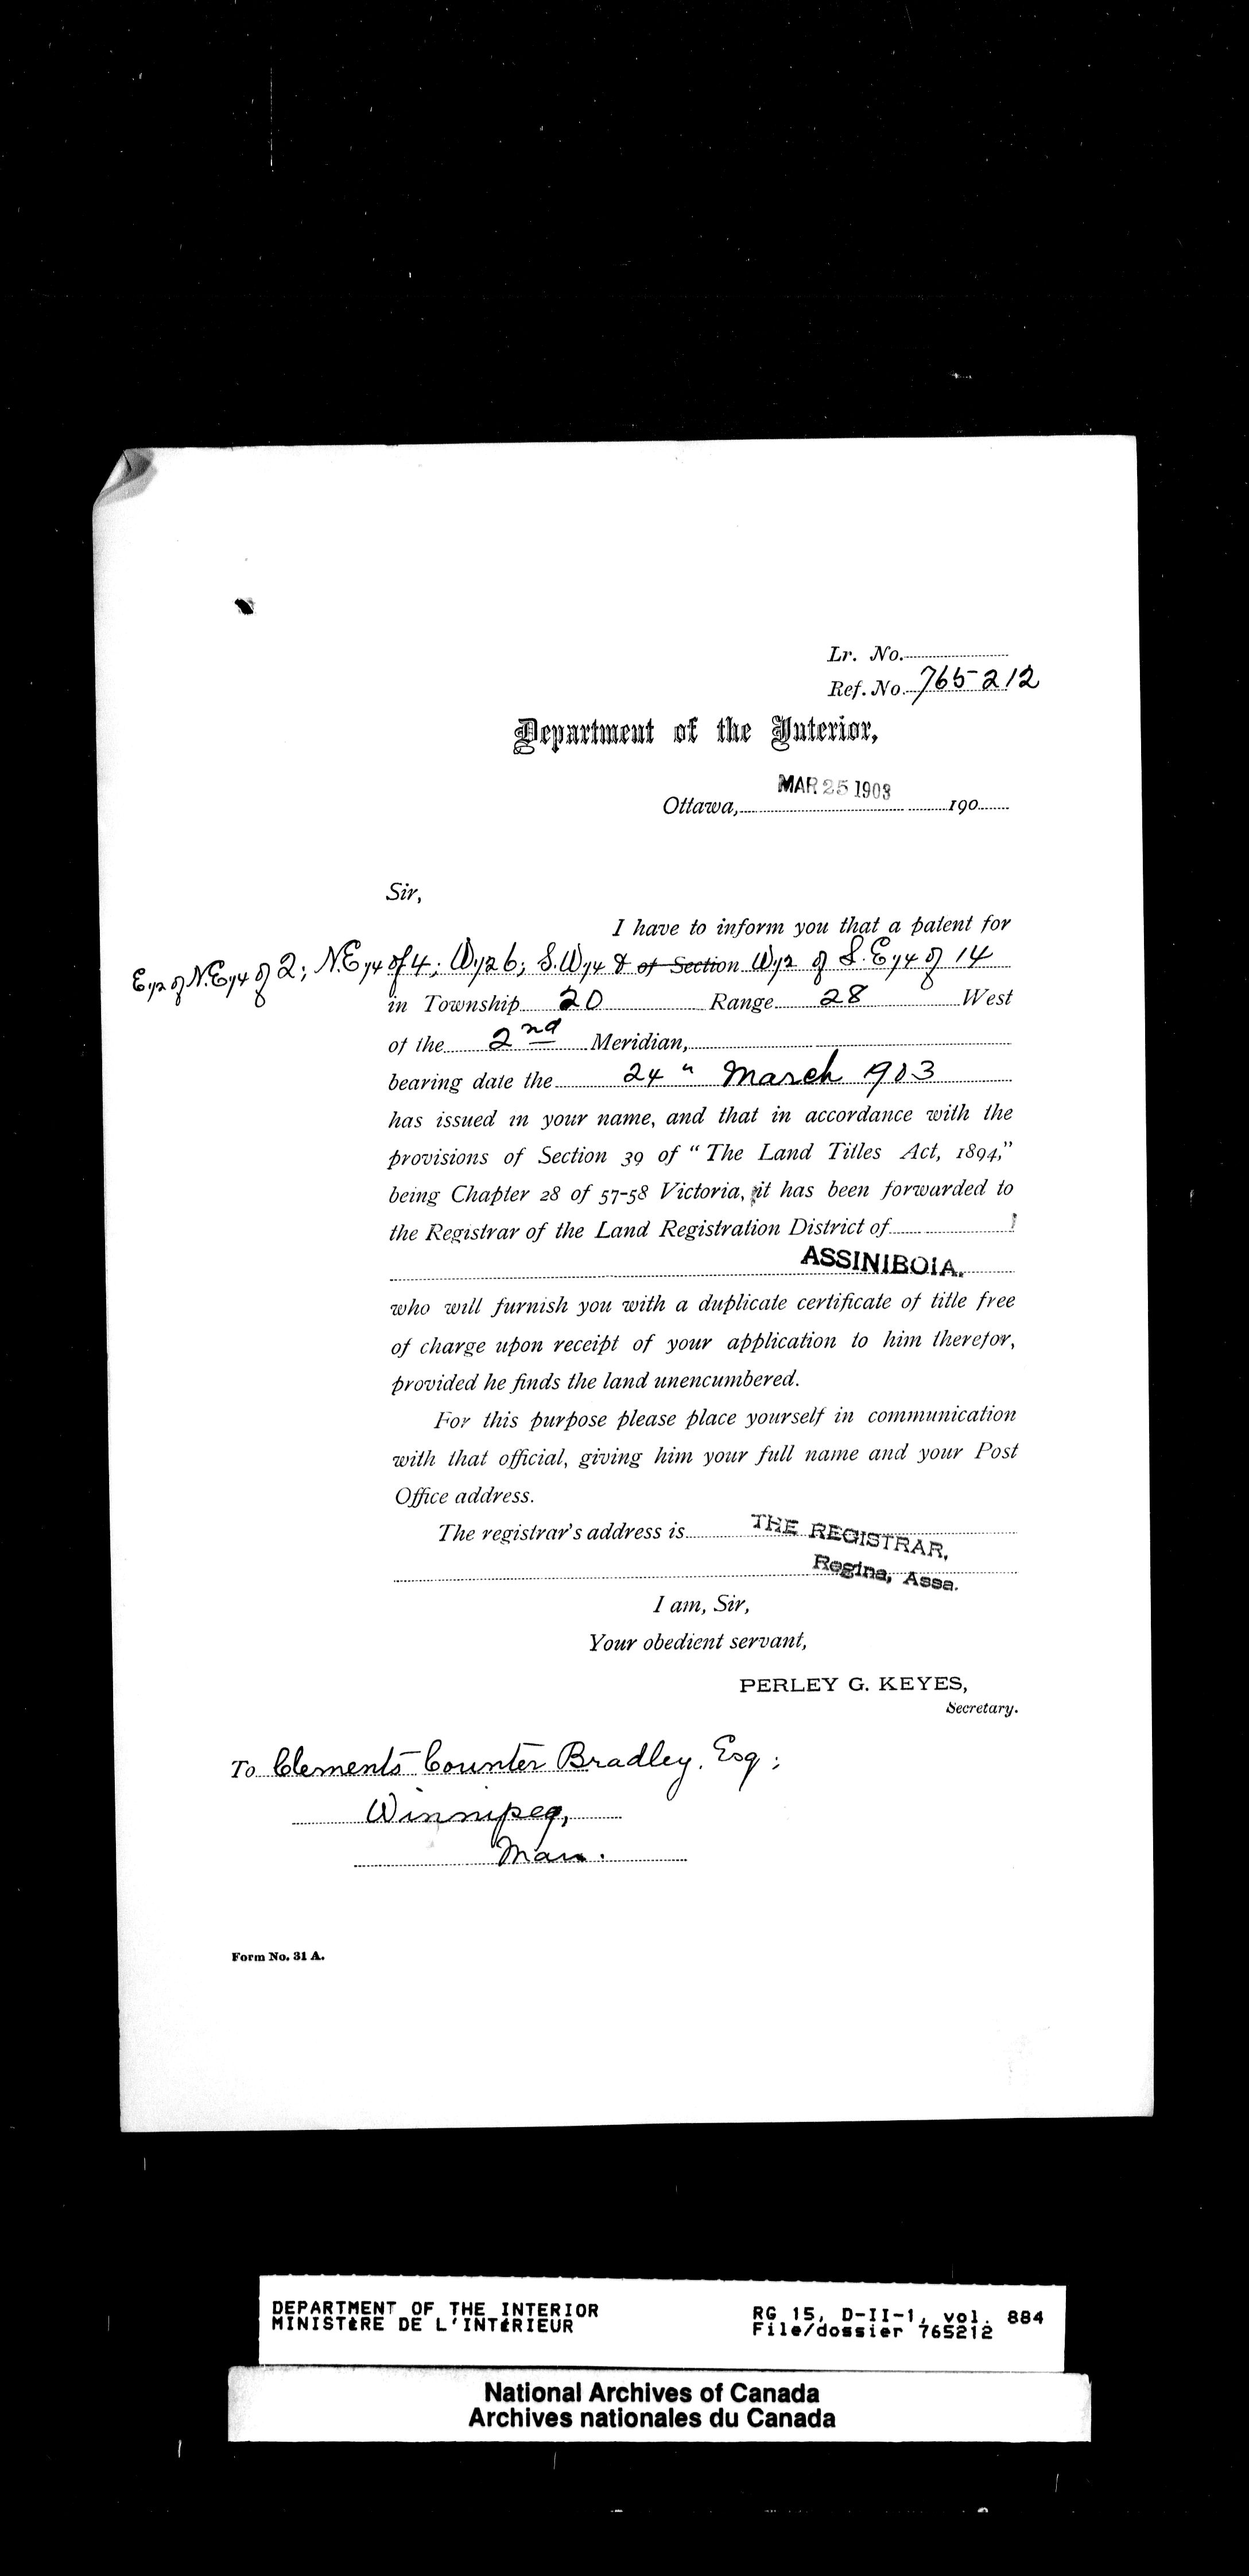 Lr. No.
Ref. No. 765212
Department of the Interior,
MAR 25 1903
Ottawa, 190
Sir,
I have to inform you that a patent for
E1/2 of N.E1/4 of 2; N.E1/4 of 4; W1/2 6; S.W1/4 & of Section W1/2 of S.E1/4 of 14
in Township 20 Range 28 West
of the 2nd Meridian,
bearing date the 24" March 1903
has issued in your name, and that in accordance with the
provisions of Section 39 of "The Land Titles Act, 1894,"
being Chapter 28 of 57-58 Victoria, it has been forwarded to
the Registrar of the Land Registration District of
ASSINIBOIA.
who will furnish you with a duplicate certificate of title free
of charge upon receipt of your application to him therefor,
provided he finds the land unencumbered.
For this purpose please place yourself in communication
with that official, giving him your full name and your Post
Office address.
The registrar's address is THE REGISTRAR,
Regina, Assa.
I am, Sir,
Your obedient servant,
PERLEY G. KEYES,
Secretary.
To Clements Counter Bradley, Esq;
Winnipeg,
Man.
Form No. 31 A.
DEPARTMENT OF THE INTERIOR
MINISTÈRE DE L'INTÉRIEUR
RG 15, D-II-1, vol. 884
File/dossier 765212
National Archives of Canada
Archives nationales du Canada